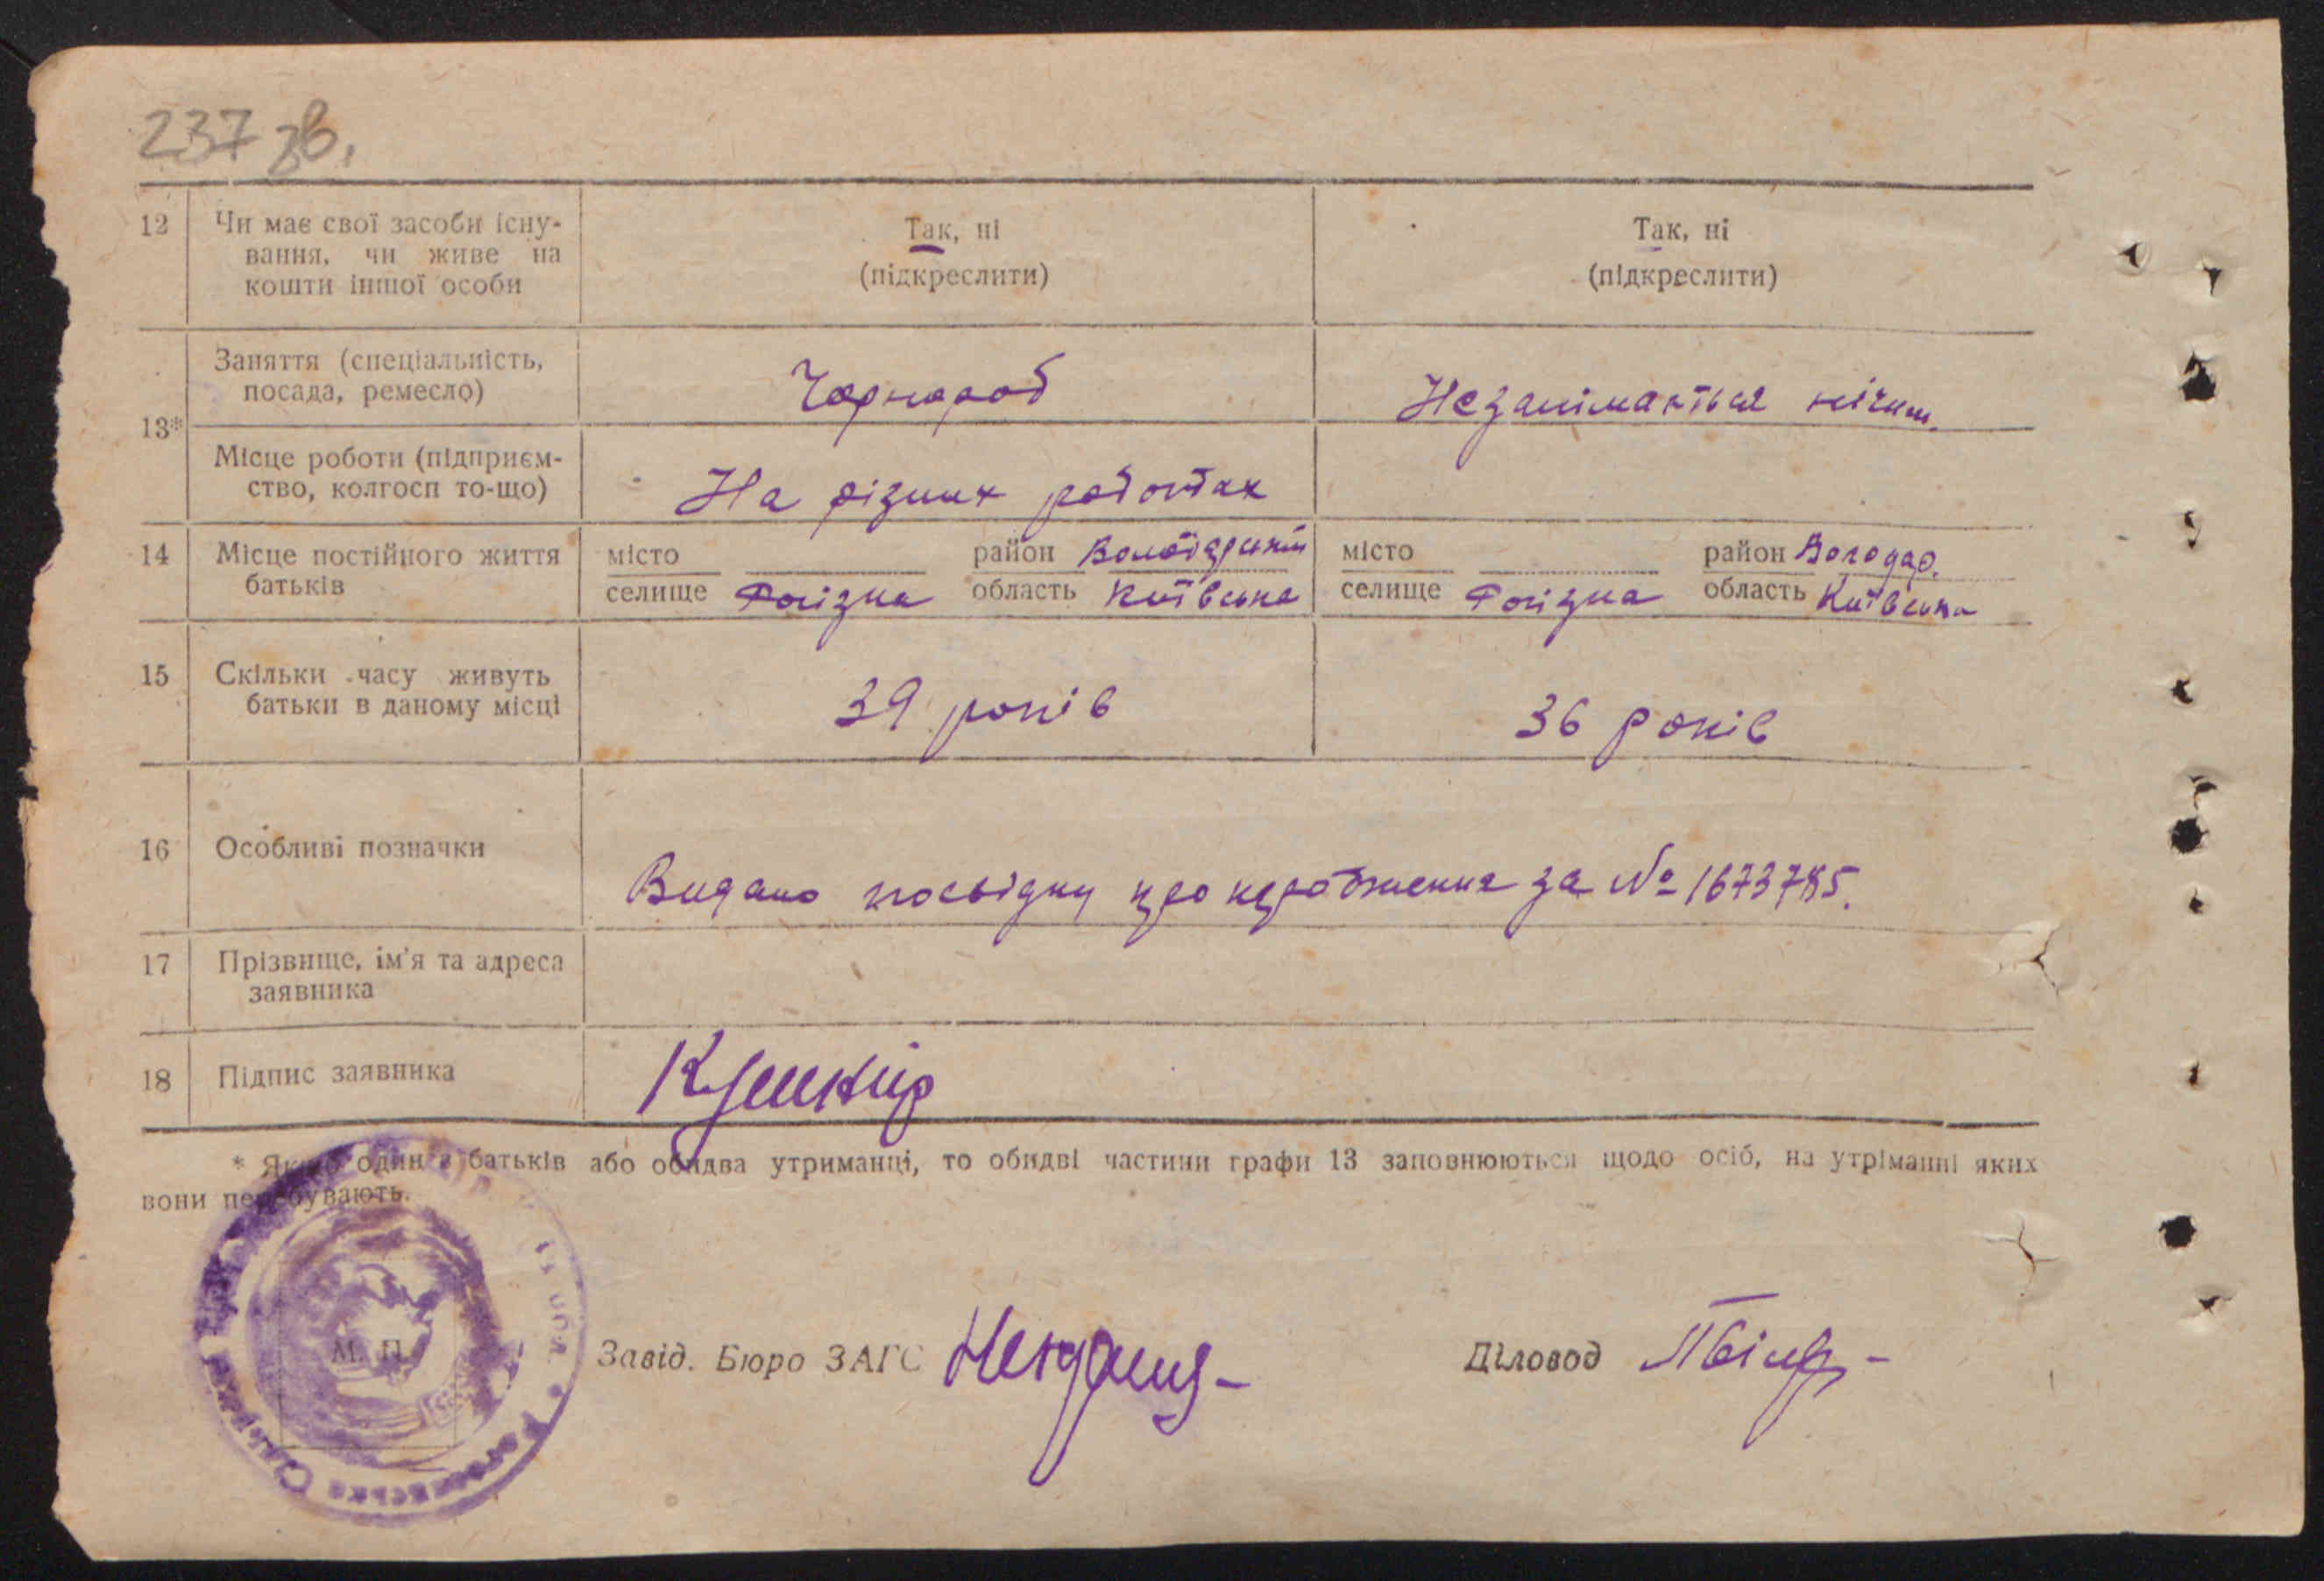 237 зв.
12 Чи має свої засоби існу-
вання, чи живе на
кошти іншої особи
Так, ні
(підкреслити)
Так, ні
(підкреслити)
13*
Заняття (спеціальність,
посада, ремесло)
Чорнороб
Незанімається нічим.
Місце роботи (підприєм-
ство, колгосп то-що)
На різних работах
14 Місце постійного життя
батьків
місто район
селище область Київська
місто район Володар.
селище область Київська
15 Скільки часу живуть
батьки в даному місці
39 років
36 років
16 Особливі позначки
Видано посвідку про за № 1673785.
17 Прізвище, ім'я та адреса
заявника
18 Підпис заявника
Кушнір
* Якщо один з батьків або обидва утриманці, то обидві частини графи 13 заповнюються щодо осіб, на утріманні яких
вони перебувають.
М. П.
Завід. Бюро ЗАГС
Діловод